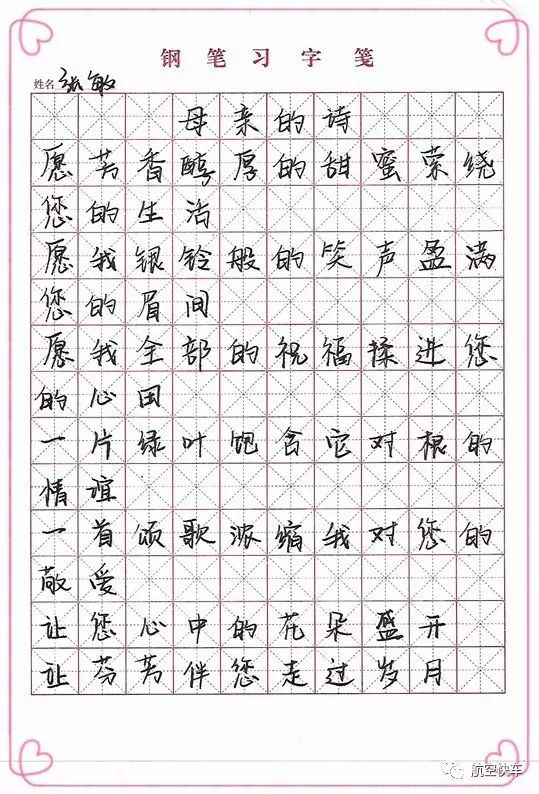 钢笔习字笺
姓名 张敏
母亲的诗
愿芳香醇厚的甜蜜萦绕
您的生活
愿我银铃般的笑声盈满
您的眉间
愿我全部的祝福揉进您
的心田
一片绿叶饱含它对根的
情谊
一首颂歌浓缩我对您的
敬爱
让您心中的花朵盛开
让芬芳伴您走过岁月
航空快车